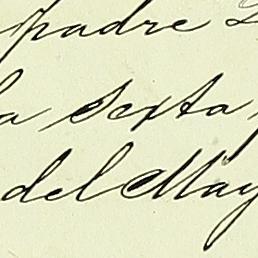 padre
la sexta
del May